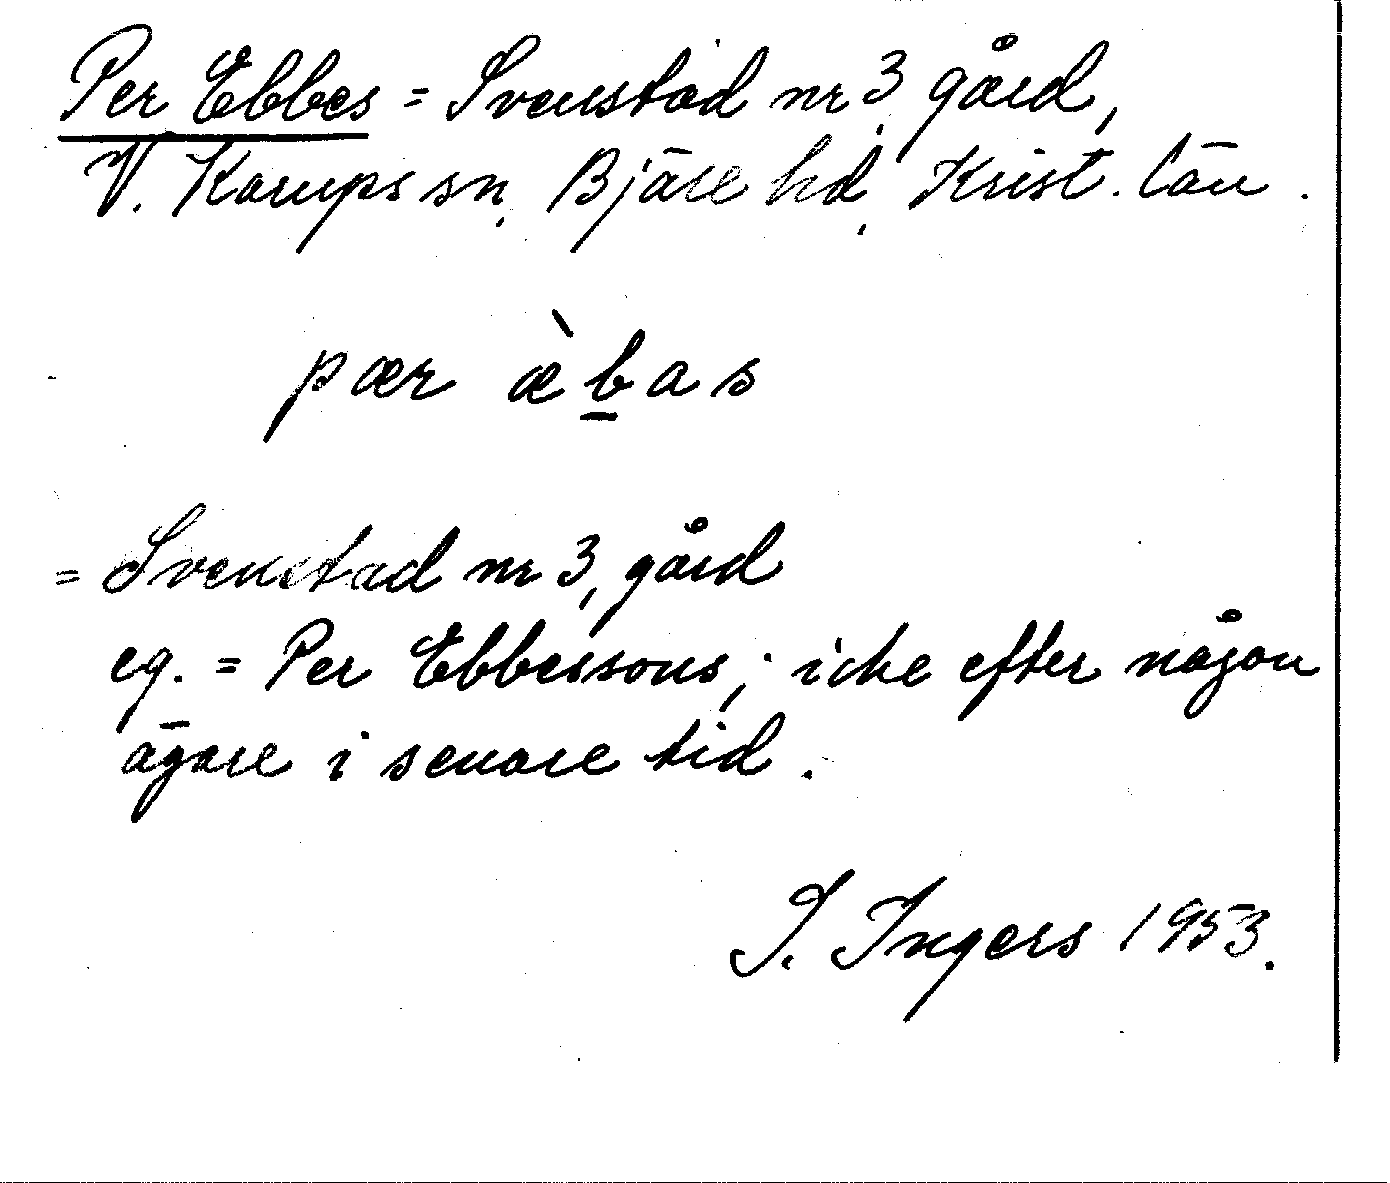 Per Ebbes = Svenstad nr 3, gård,
V. Karups sn, Bjäre hd, Krist. län.
pær æ̀b̲as
= Svenstad nr 3, gård
eg. = Per Ebbessons; icke efter någon
ägare i senare tid.
I. Ingers 1953.